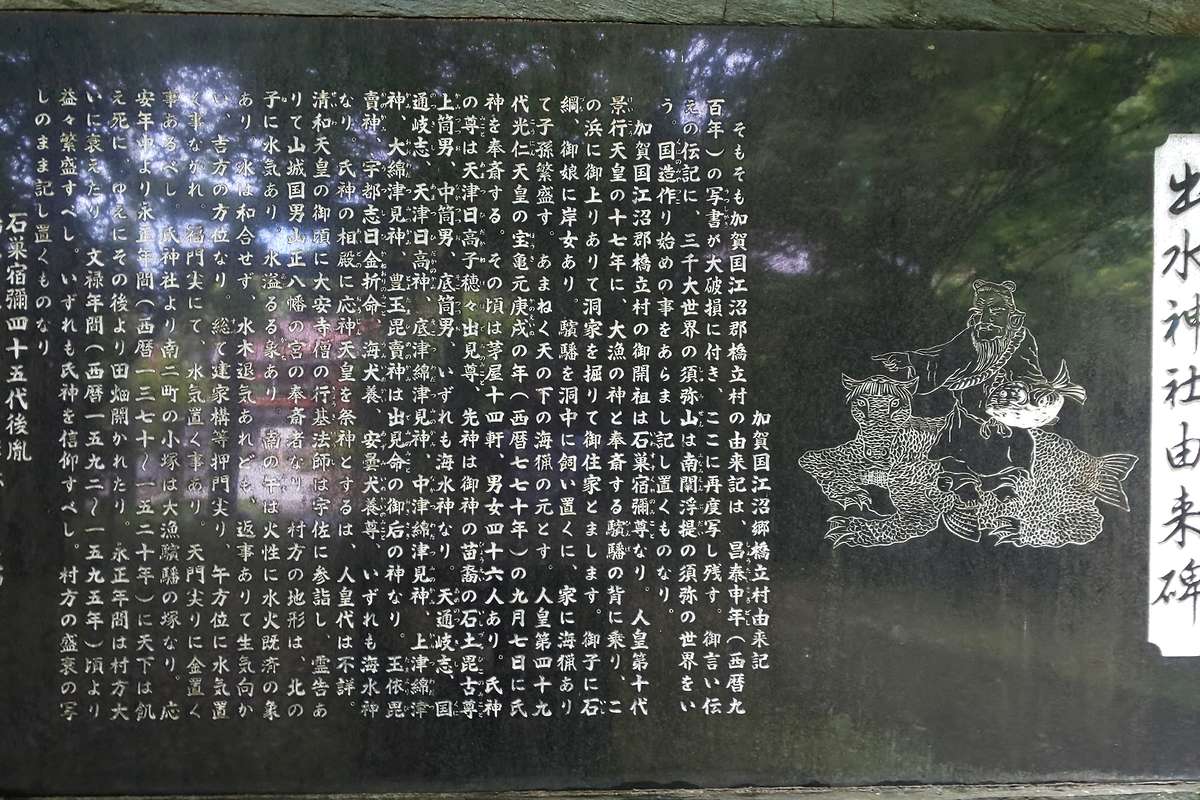 出水神社由来碑
加賀国江沼郷橋立村由来記
そもそも加賀国江沼郡橋立村の由来記は、昌泰申年(西暦九
百年)の写書が大破損に付き、ここに再度写し残す。御言い伝
えの伝記に、三千大世界の須弥山は南閻浮提の須弥の世界をい
う。国造作り始めの事をあらまし記し置くものなり。
加賀国江沼郡橋立村の御開祖は石菓宿彌尊なり。人皇第十代
景行天皇の十七年に、大漁の神と奉斎する の背に乗り、こ
の浜に御上りありて洞家を掘りて御住家とまします。御子に石
綱、御娘に岸女あり。 を洞中に飼い置くに、家に海猟あり
て子孫繁盛す。あまねく天の下の海猟の元とす。人皇第四十九
代光仁天皇の宝亀元庚戌の年(西暦七七十年)の九月七日に氏
神を奉斎する。その頃は茅屋十四軒、男女四十六人あり。氏神
の尊は天津日高子穂々出見尊、先神は御神の苗裔の石土毘古尊
上筒男、中筒男、底筒男、いずれも海水神なり。天通岐志、国
通岐志、天津日高神、底津綿津見神、中津綿津見神、上津綿津
神、大綿津見神、豊玉毘賣神は出見命の御后の神なり。玉依毘
賣神、宇都志日金折命、海犬養、安曇犬養尊、いずれも海水神
なり。氏神の相殿に応神天皇を祭神とするは、人皇代は不詳。
清和天皇の御頭に大安寺僧の行基法師は宇佐に参詣し、霊告あ
りて山城国男山正八幡の宮の奉斎者なり。村方の地形は、北の
子に水気あり。水溢るる象あり。南の午は火性に水火既済の象
あり、水は和合せず、水木退気あれども、返事ありて生気向か
い、吉方の方位なり。総て建家構等押門尖り、午方位に水気置
く事なかれ。福門尖にて、水気置く事あり。天門尖りに金置く
事あるべし。氏神社より南二町の小塚は大漁 の塚なり。応
安年中より永正年間(西暦一三七十~一五二十年)に天下は飢
え死に、ゆえにその後より田畑開かれたり。永正年間は村方大
いに衰えたり。文禄年間(西暦一五九二~一五九五年)頃より
益々繁盛すべし。いずれも氏神を信仰すべし。村方の盛衰の写
しのまま記し置くものなり。
石菓宿彌四十五代後胤